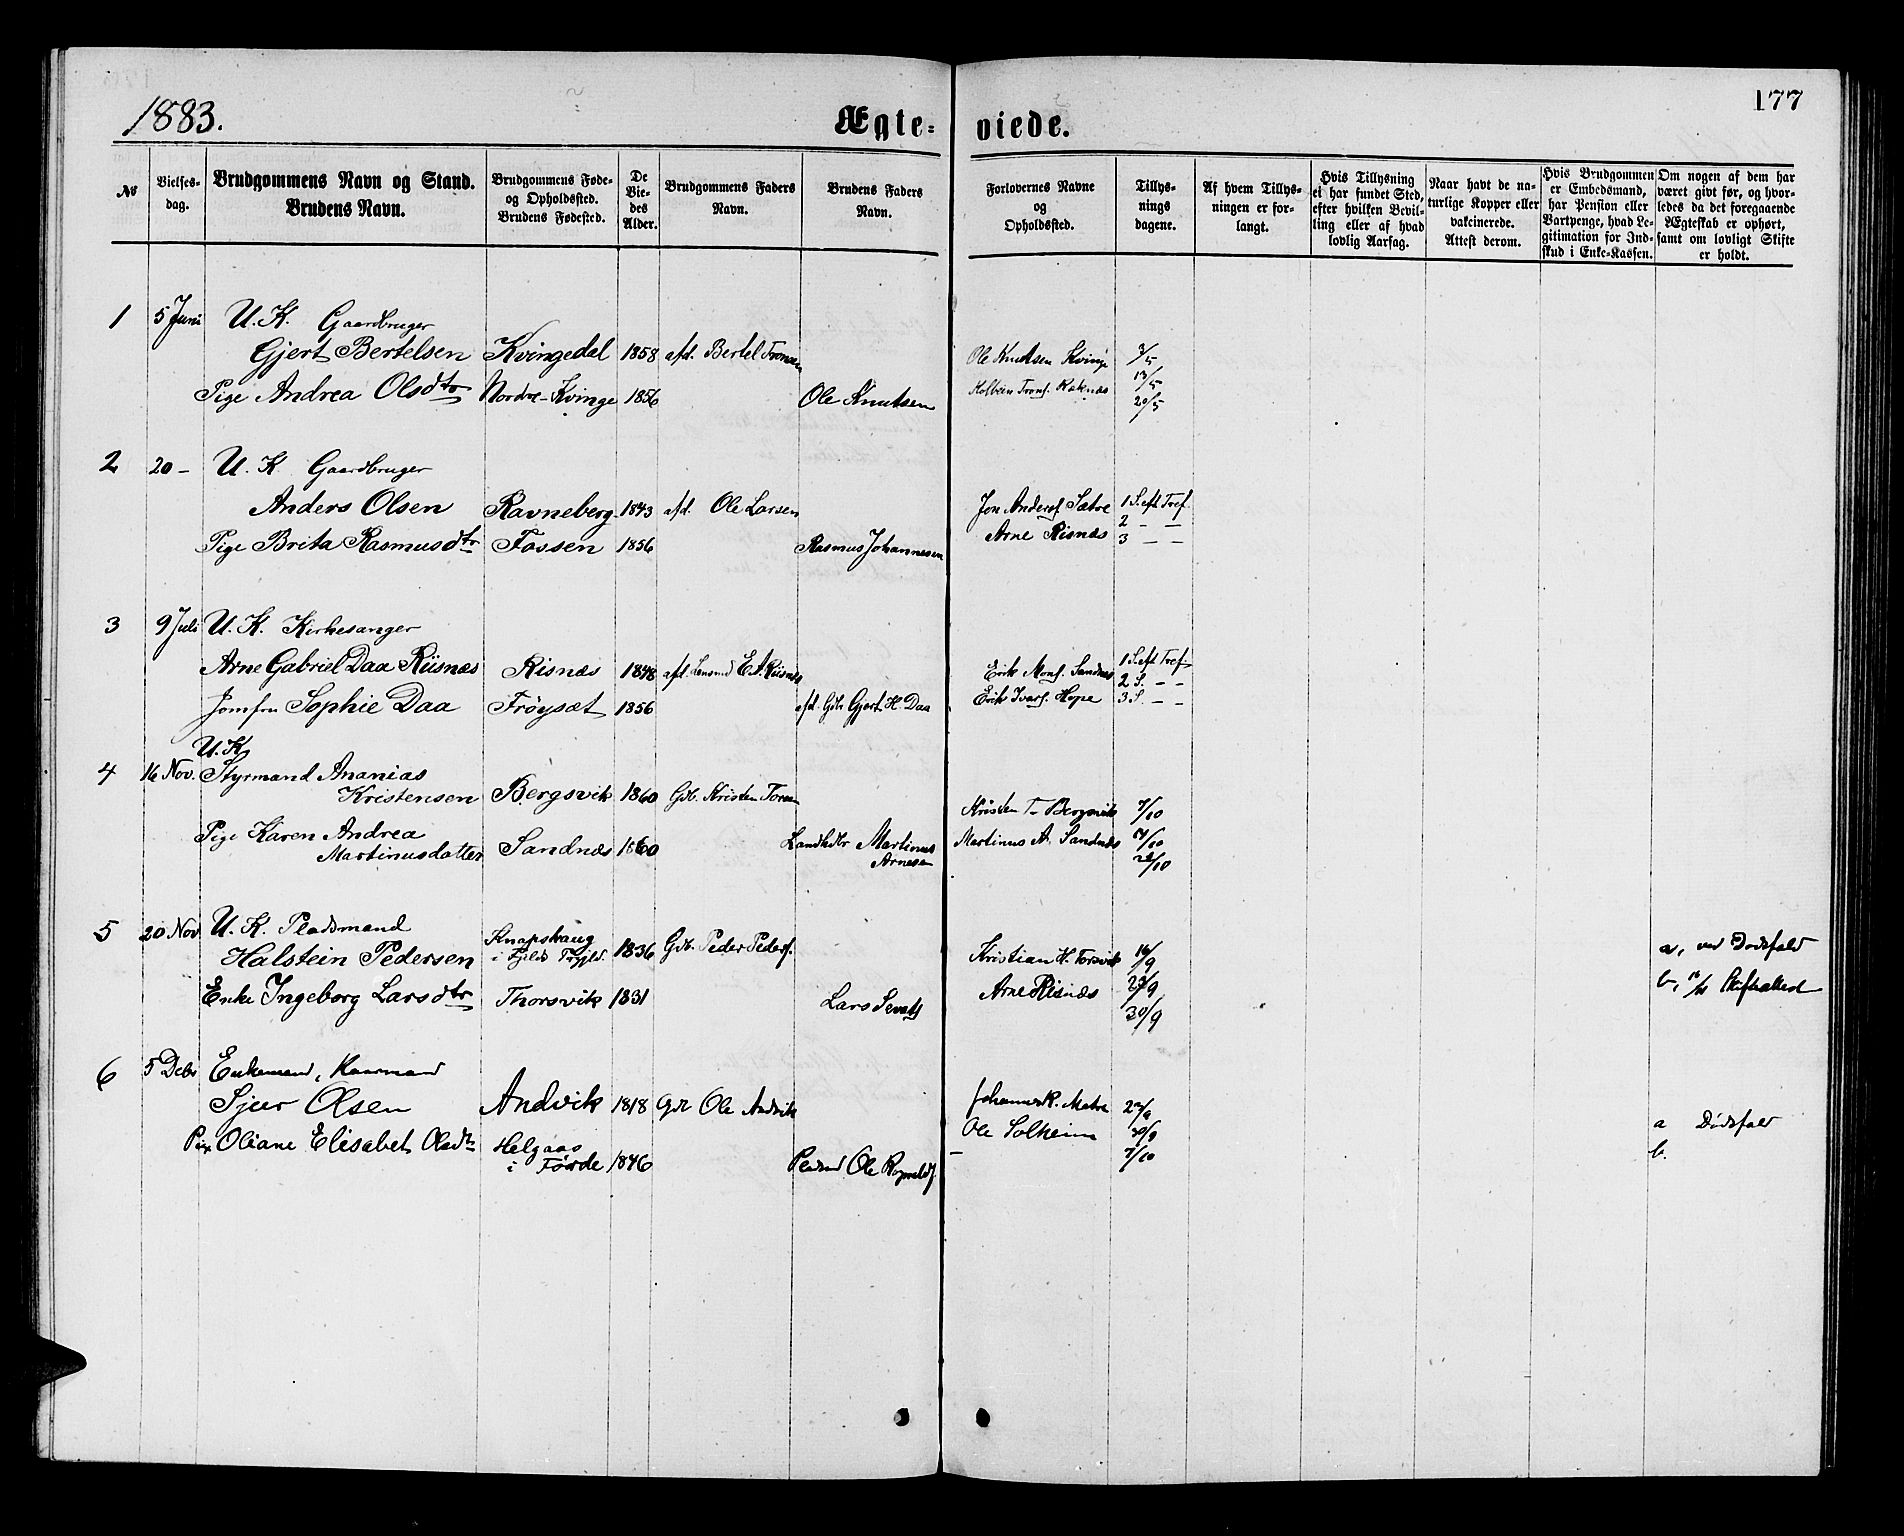 1883.
Ægteviede.
177
No
Vielses-
dag.
Brudgommens Navn og Stand.
Brudens Navn.
Brudgommens Føde-
og Opholdssted.
Brudens Fødested.
De
Vie-
des
Alder.
Brudgommens Faders
Navn.
Brudens Faders
Navn.
Forlovernes Navne
og
Opholdssted.
Tillys-
nings
dagene.
Af hvem Tillys-
ningen er for-
langt.
Hvis Tillysning
ei har fundet Sted,
efter hvilken Bevil-
ling eller af hvad
lovlig Aarsag.
Naar havt de na-
turlige Kopper eller
vakcinerede.
Attest derom.
Hvis Brudgommen
er Embedsmand,
har Pension eller
Vartpenge, hvad Le-
gitimation for Ind-
skud i Enke-Kassen.
Om nogen af dem har
været givt før, og hvor-
ledes da det foregaaende
Ægteskab er ophørt,
samt om lovligt Skifte
er holdt.
1 5 Juni U. K. Gaardbruger
Gjert Bertelsen Kvingedal 1858 afd. Bertel Ole Knutsen Kvinge 3/5
Pige Andrea Olsdtr Nordre-Kvinge 1856 Ole Knutsen 13/5
20/5
2 20 - U. K Gaardbruger
Anders Olsen Ravneberg 1843 afd. Ole Larsen Jon Anders. Sætre 1 S. eft Tref.
Pige Brita Rasmusdtr Fossen 1856 Rasmus Johannesen Arne Risnæs 2 - -
3 - -
3 9 Juli U. K. Kirkesanger
Arne Gabriel Daa Riisnæs Risnæs 1848 afd. Lensmd E. A. Riisnæs Erik Mons. Sandnæs 1 S. eft Tref.
2 S. - -
Jomfru Sophie Daa Frøysæt 1856 afd. Gdbr Gjert H. Daa Erik Ivars. Hope 3 S. - -
U. K
4 16 Nov. Styrmand Ananias
Kristensen Bergsvik 1860 Gdb. Kristen Kristen T- Bergsvik 7/10
Pige Karen Andrea
Martinusdatter Sandnæs 1860 Martinus
Arnesen Martinus A. Sandnæs /10
/10
5 20 Nov U. K. Pladsmand
Halstein Pedersen Knapshaug
i 1836 Gdb. Peder Peders. Kristian H. Torsvik 16/9 a, ved Dødsfald
Enke Ingeborg Larsdtr Thorsvik 1831 Lars Arne Risnæs 23/9 b,
30/9
6 5 Debr Enkemand, Kaarmand
Sjur Olsen Andvik 1818 Gdb Ole Andvik Johannes K. Matre /9
Pige Oliane Elisabet Olsdtr Helgaas
i Førde 1846 Ole Ole Solheim 30/9 a Dødsfald
7/10 b.